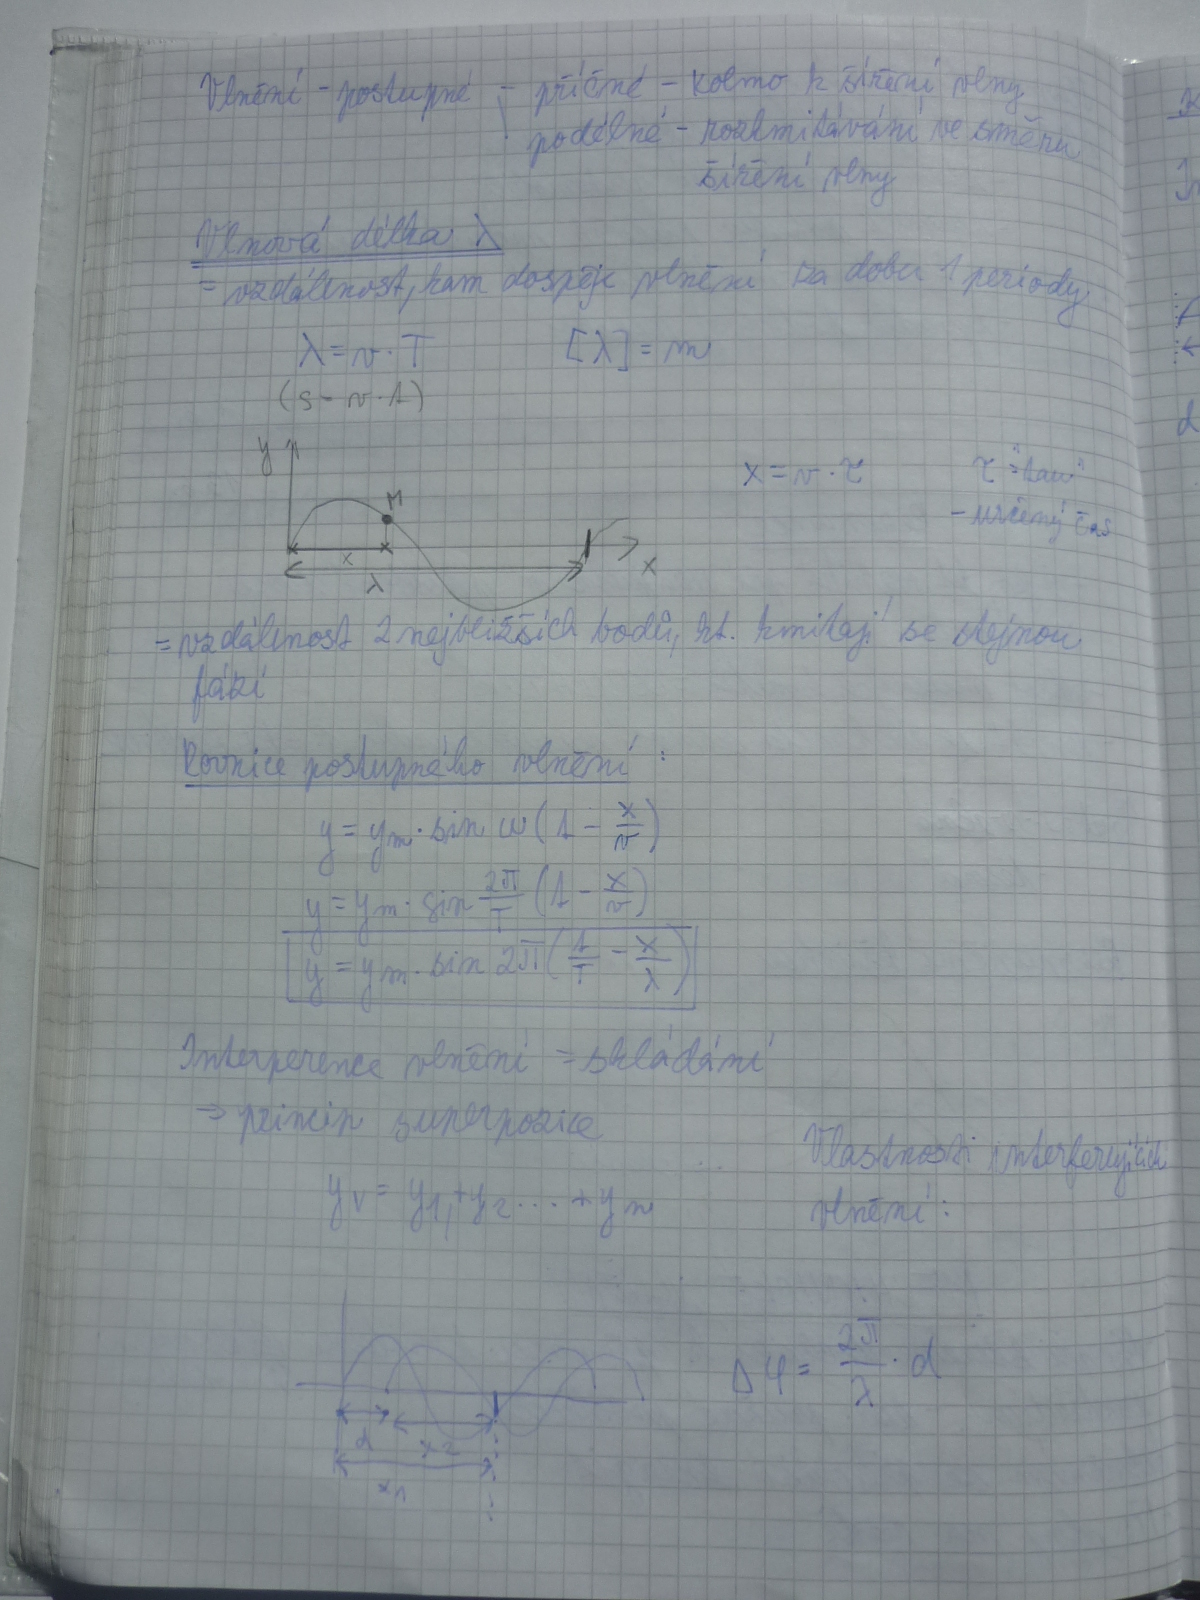 Vlnění - postupné - příčné - kolmo k šíření vlny
podélné - rozkmitávání ve směru
šíření vlny
Vlnová délka λ
= vzdálenost, kam dospěje vlnění za dobu 1 periody
λ = v · T [λ] = m
(s = v · t)
y M x = v · τ τ "tau"
- určený čas
x
λ x
= vzdálenost 2 nejbližších bodů, kt. kmitají se stejnou
fází
Rovnice postupného vlnění :
y = ym · sin ω (t - x/v)
y = ym · sin 2π/T (t - x/v)
y = ym · sin 2π (t/T - x/λ)
Interference vlnění = skládání
⇒ princip superpozice
Vlastnosti interferujících
yv = y1 + y2 ... + yn vlnění :
Δφ = 2π/λ · d
d x2
x1